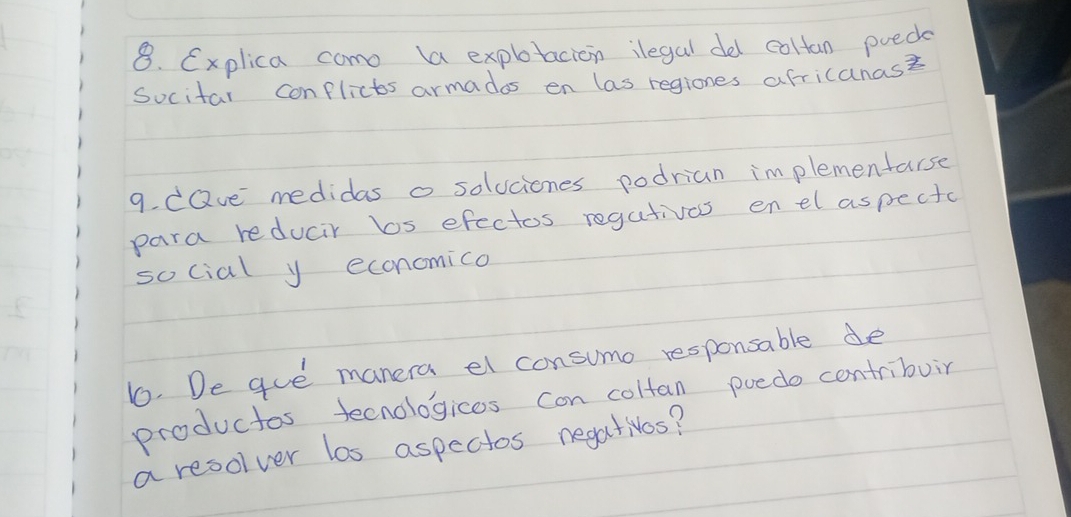 8. Explica como la explotación ilegal del coltan puede
sucitar conflictos armados en las regiones africanas
9. ¿Qué medidas o soluciones podrian implementarse
para reducir los efectos negativos en el aspecto
social y economico
10. De qué manera el consumo responsable de
productos tecnológicos con coltan puedo contribuir
a resolver los aspectos negativos?